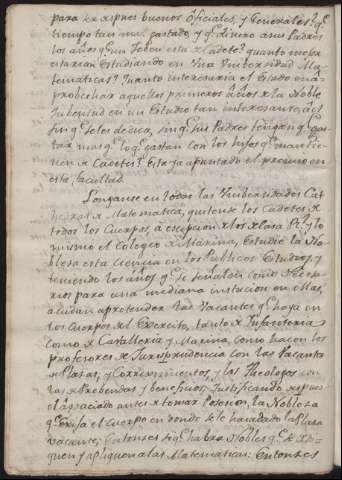 para ser despues buenos oficiales, y Generales? q.e
tiempo tan mal gastado, y q.e dinero a sus Padres
los años q.e un Joben esta de Cadete? quanto mejor
estarian Estudiando en Una Universidad Ma-
tematicas? Quanto interesaria el Estado en a-
probechar aquellos primeros años de la Noble
Jubentud en un Estudio tan interesante, al
fin q.e se les dedica, sin q.e sus Padres tengan q.e gas-
tar mas q.e lo q.e gastan con los hijos q.e mantie-
nen de Cadetes? Este ya apuntado el premio en
esta facultad.
Ponganse en todas las Universidades Cat-
hedras de Matematica, quitense los Cadetes de
todos los Cuerpos, a excepcion de los de Casa R.l y lo
mismo el Colegio de Marina, Estudie la No-
bleza esta Ciencia en los Publicos Estudios, y
teniendo los años q.e se señalen como Neces-
rios para una mediana instucion en Mat.
acudan a pretender las Vacantes q.e haya en
los Cuerpos del Exercito, tanto de Infanteria
como de Cavalleria y Marina, como hacen los
profesores de Jurisprudencia con las Vacantes
de Plazas, y Correximientos, y los Theologos con
las de Prebendas y beneficios, Justificando despues
el agraciado antes de tomar Posesion, la Nobleza
q.e exija el Cuerpo en donde se le ha dado la Plaza
vacante; Entonses si q.e habra Nobles q.e se
y apliquen a las Matematicas: Entonses